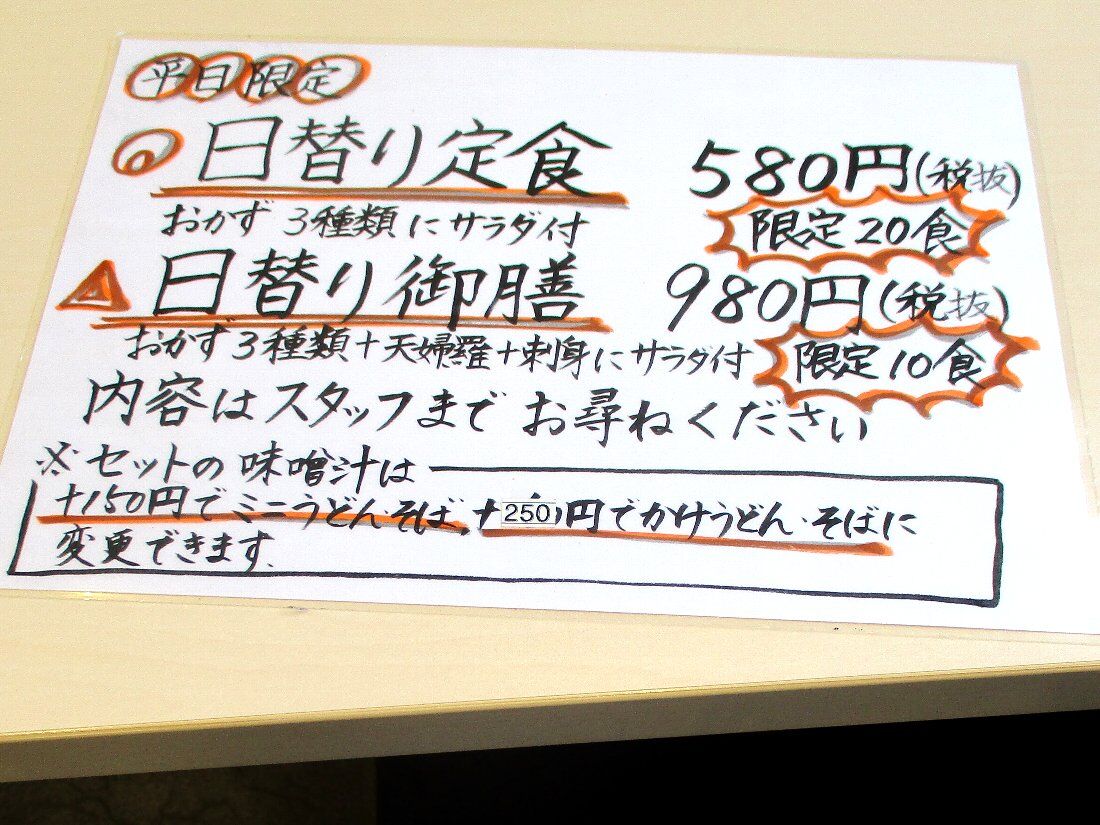 平日限定
日替り定食 580円(税抜)
おかず3種類にサラダ付 限定20食
日替り御膳 980円(税抜)
おかず3種類+天婦羅+刺身にサラダ付 限定10食
内容はスタッフまでお尋ねください
※セットの味噌汁は
+150円でミニうどん・そば、+250円でかけうどん・そばに
変更できます.